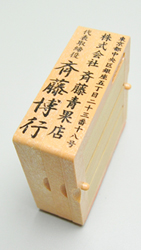 東京都中央区銀座五丁目二十三番十八号
株式会社 斉藤青果店
代表取締役
斉藤博行